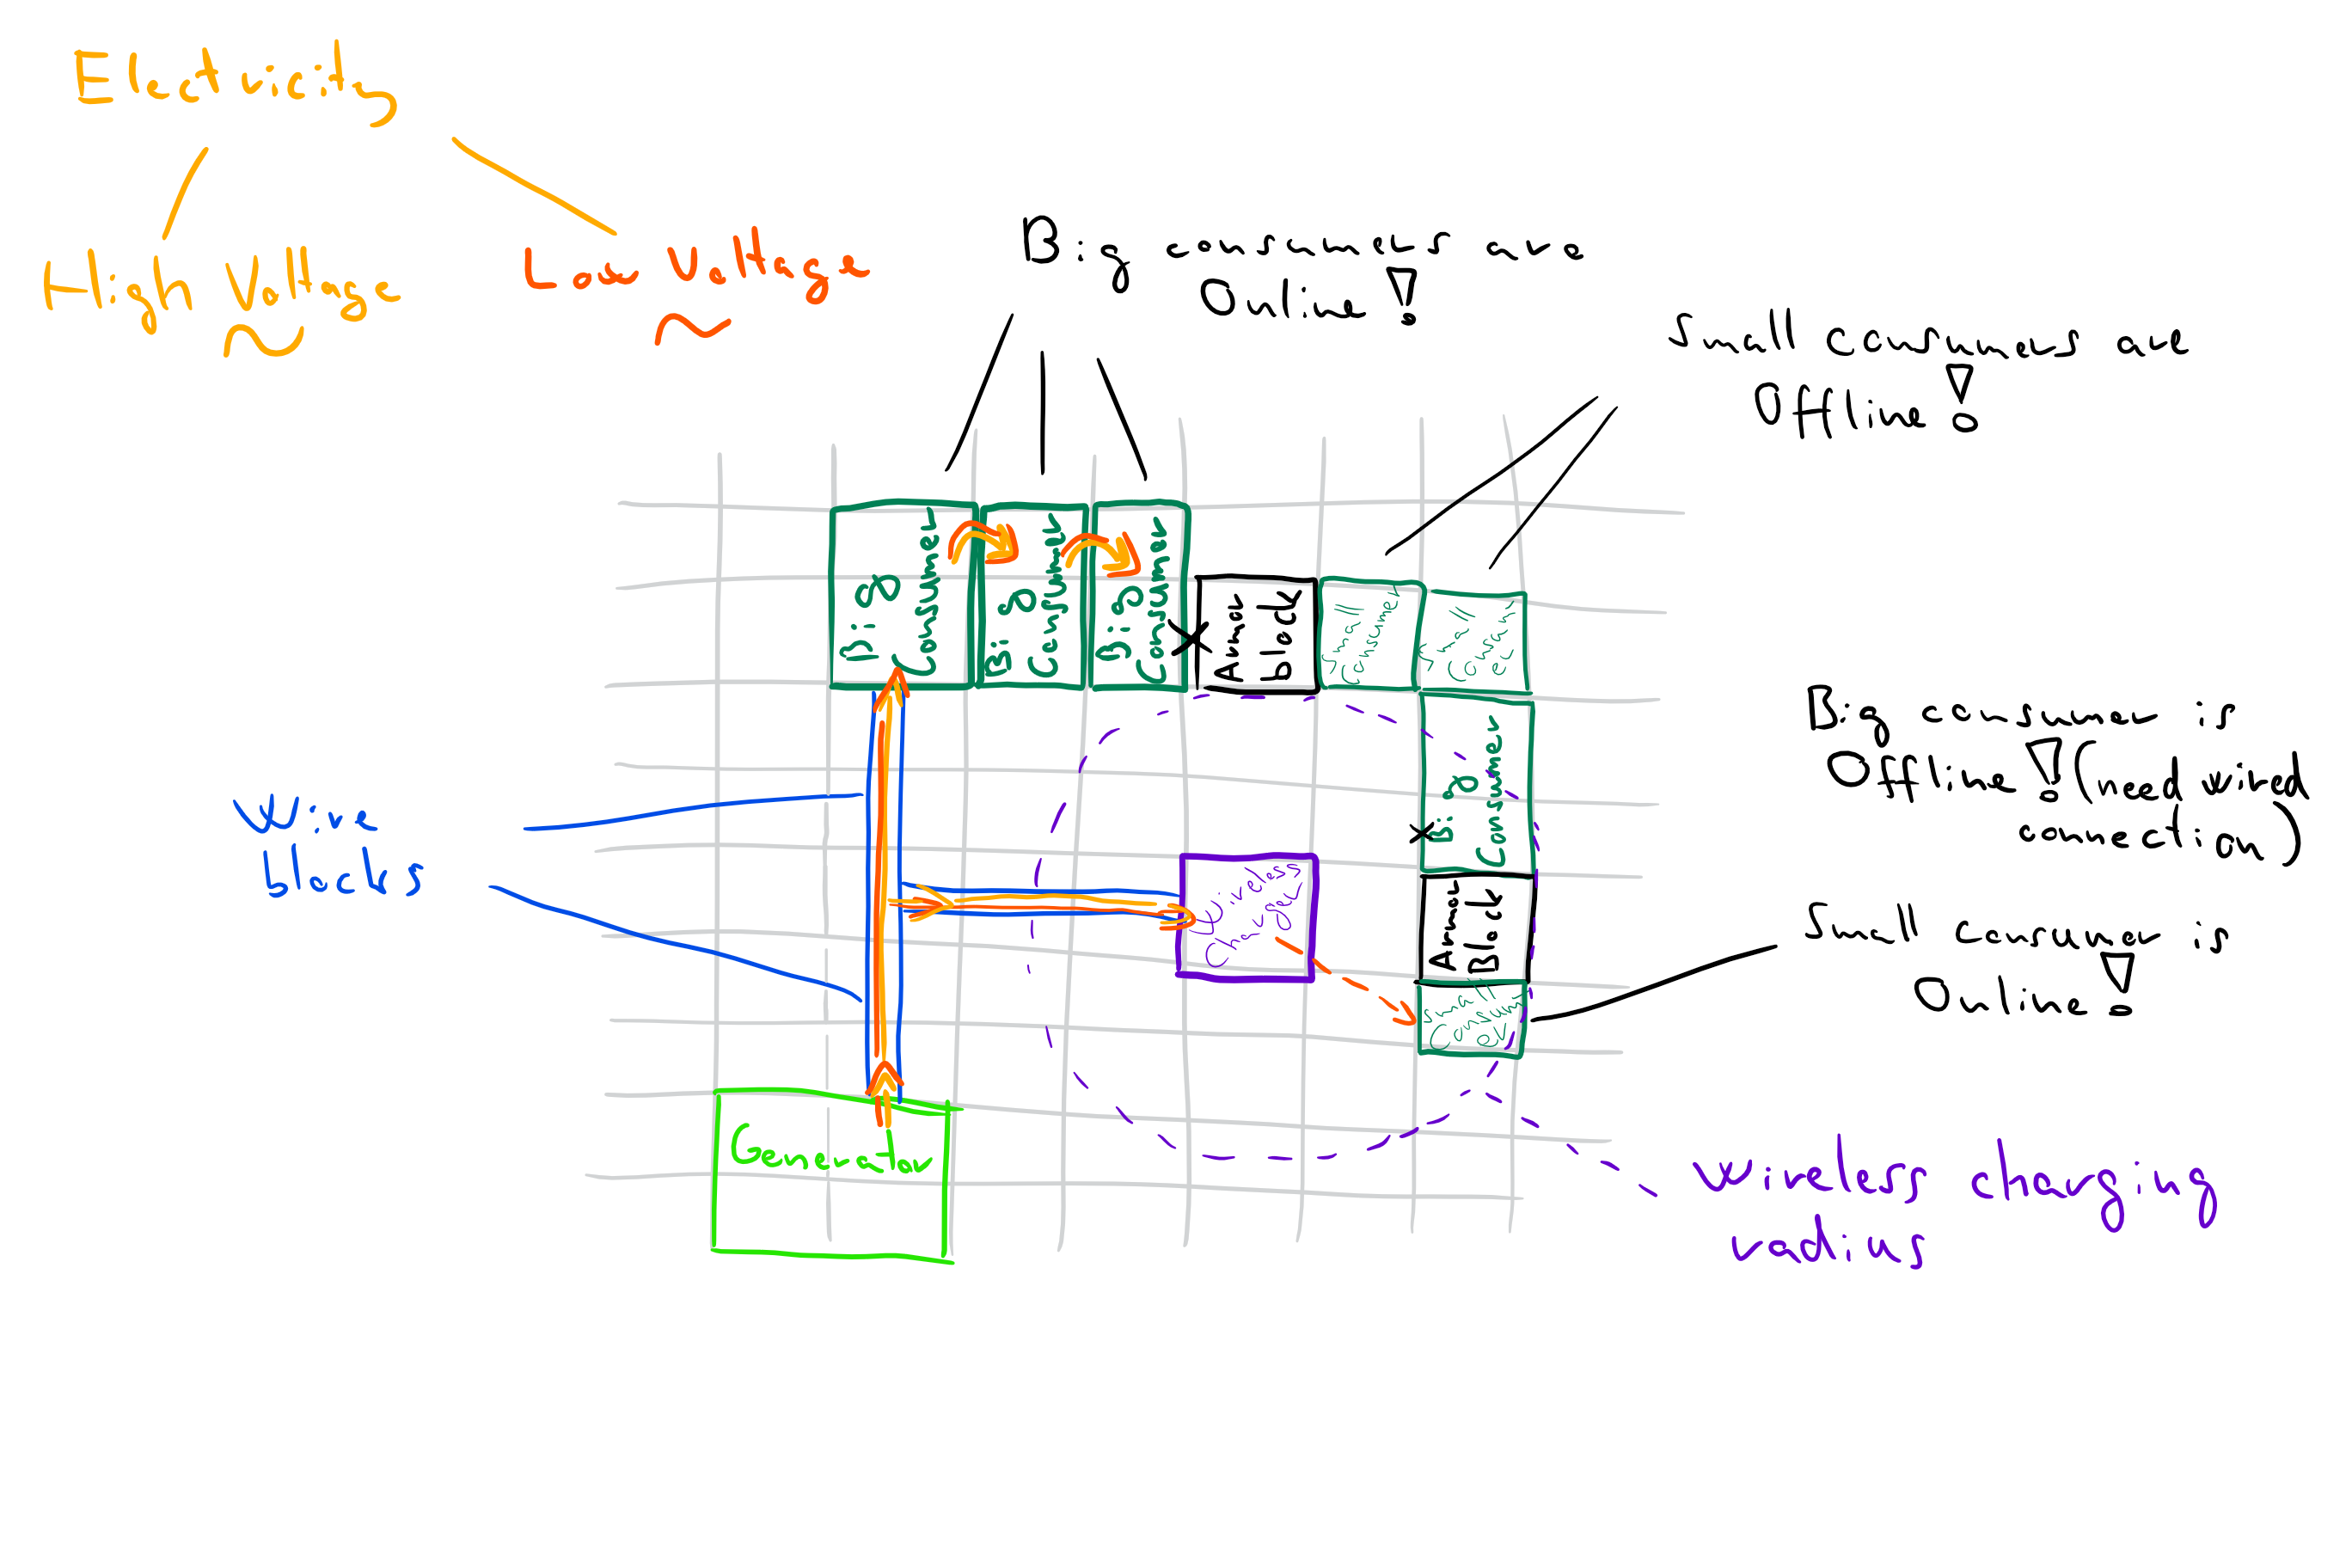 Electricity
High Voltage
Low Voltage
Big consumers are
Online!
Small consumers are
Offline!
Big
Consumer
Big
Consumer
Big
Consumer
Armor
block
Small
Consumer
Small
Consumer
Big
Consumer
Big consumer is
Offline! (need wired
connection)
Wire
blocks
Wireless
Charger
Armor
block
Small
Consumer
Small consumer is
Online!
Generator
Wireless charging
radius